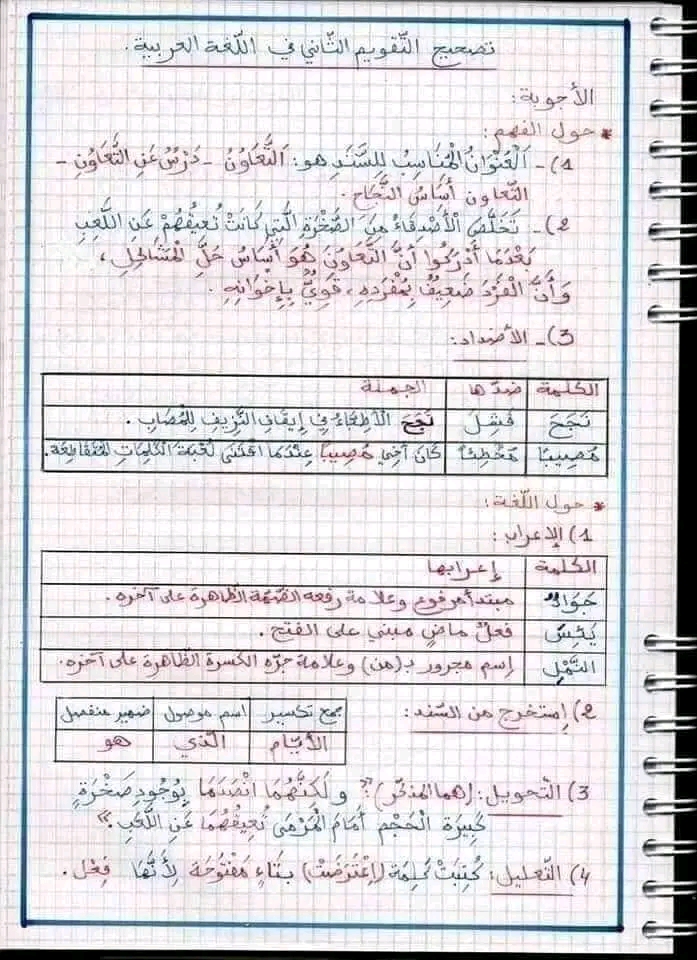 تصحيح التّقويم الثّاني في اللّغة العربية.
الأجوبة:
* حول الفهم:
1)- اَلْعُنْوَانُ الْمُنَاسِبُ لِلسَّنَدِ هو: اَلتَّعَاوُنُ - دَرْسٌ عَنِ التَّعَاوُنِ -
التَّعاون أَسَاسُ النَّجَاحِ.
2)- تَخَلَّصَ الْأَصْدِقَاءُ مِنَ الصَّخْرَةِ الَّتِي كَانَتْ تُعِيقُهُمْ عَنِ اللَّعِبِ
بَعْدَمَا أَدْرَكُوا أَنَّ التَّعَاوُنَ هُوَ أَسَاسُ حَلِّ الْمَشَاكِلِ،
وَأَنَّ الْفَرْدَ ضَعِيفٌ بِمُفْرَدِهِ، قَوِيٌّ بِإِخْوَانِهِ.
3)- الأضداد:
الكلمة ضدّها الجملة
نَجَحَ فَشِلَ نَجَحَ الْأَطِبَّاءُ فِي إِيقَافِ النَّزِيفِ لِلْمُصَابِ.
مُصِيبًا مُخْطِئًا كَانَ أَخِي مُصِيبًا عِنْدَمَا اقْتَنَى لُعْبَةَ الْكَلِمَاتِ الْمُتَقَاطِعَة.
* حول اللّغة:
1) الإعراب:
الكلمة إعرابها
جَوَادُ مبتدأ مرفوع وعلامة رفعه الضّمّة الظّاهرة على آخره.
يَئِسَ فعلٌ ماضٍ مبني على الفتح.
النَّمْلِ إسم مجرور بـ(من) وعلامة جرّه الكسرة الظّاهرة على آخره.
2) إستخرج من السّند:
جمع تكسير اسم موصول ضمير منفصل
الأيّام الّذي هو
3) التّحويل: (هما المذكّر): "ولَكِنَّهُمَا انْصَدَمَا بِوُجُودِ صَخْرَةٍ
كَبِيرَةِ الْحَجْمِ أَمَامَ الْمَرْمَى تُعِيقُهُمَا عَنِ اللَّعِبِ."
4) التّعليل: كُتِبَتْ كَلِمَة (اِعْتَرَضَتْ) بِتَاءٍ مَفْتُوحَة لِأَنَّهَا فِعْل.